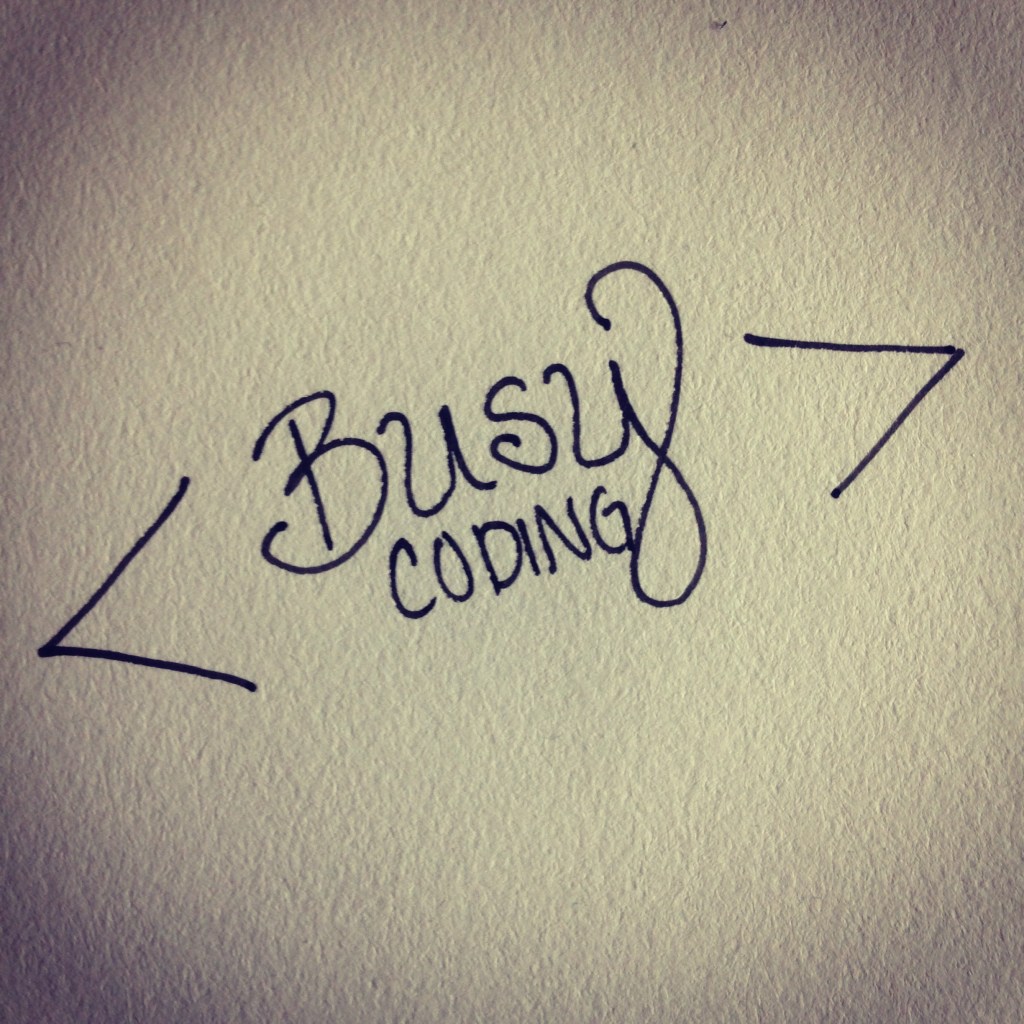 < Busy >
CODING